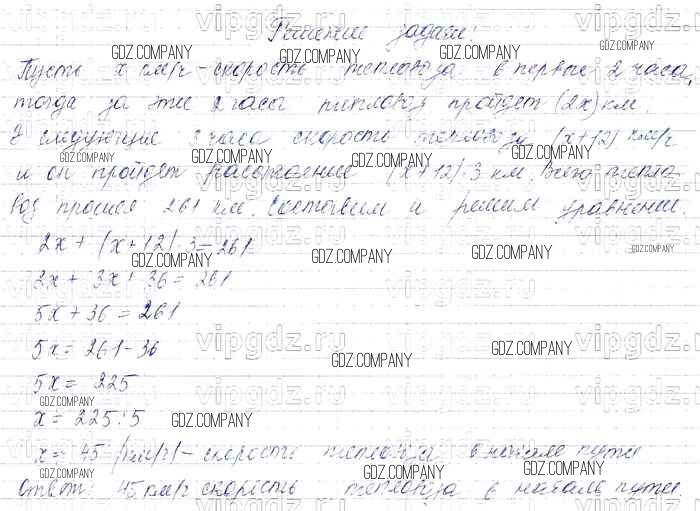 Решение задачи:
Пусть x км/ч - скорость тепловоза в первые 2 часа,
тогда за эти 2 часа тепловоз пройдет (2x) км.
В следующие 3 часа скорость тепловоза (x+12) км/ч
и он пройдет расстояние (x+12)·3 км. Всего тепло-
воз прошел 261 км. Составим и решим уравнение.
2x + (x+12)·3 = 261
2x + 3x + 36 = 261
5x + 36 = 261
5x = 261 - 36
5x = 225
x = 225 : 5
x = 45 (км/ч) - скорость тепловоза в начале пути
Ответ: 45 км/ч скорость тепловоза в начале пути.
GDZ.COMPANY
vipgdz.ru